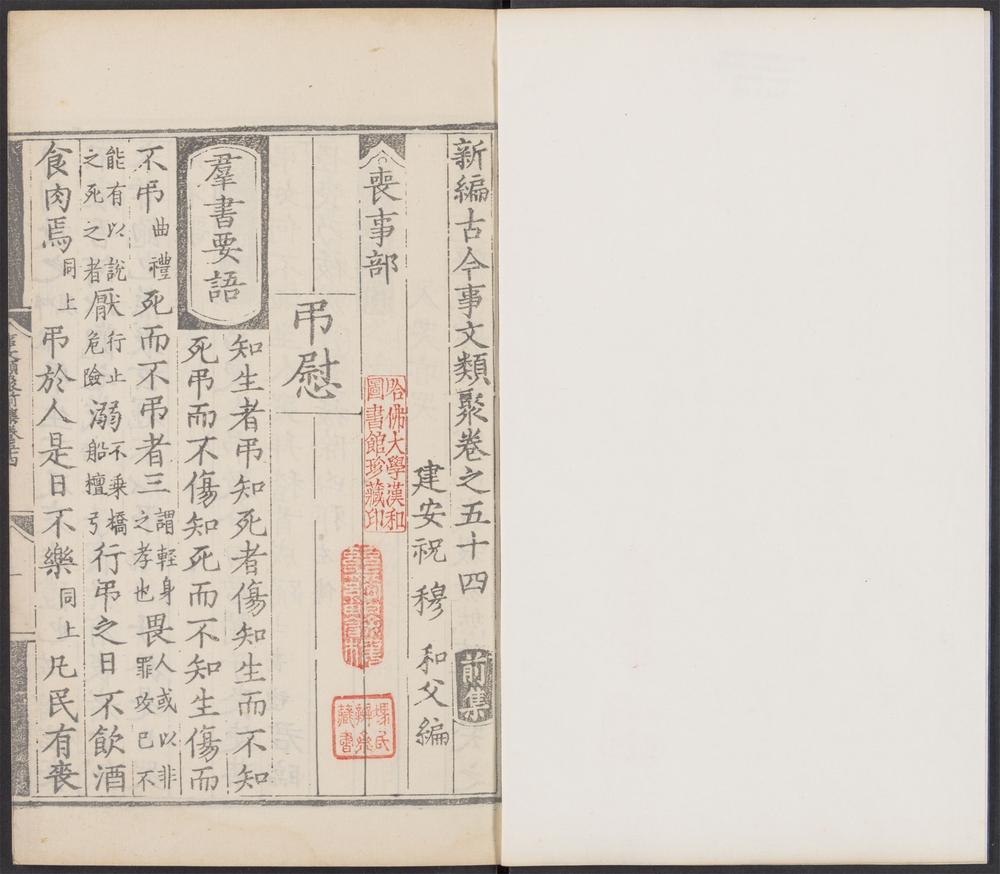 新編古今事文類聚卷之五十四 前集
建安祝 穆 和父編
喪事部
哈佛大學漢和
圖書館珍藏印
弔慰
羣書要語
知生者弔知死者傷知生而不知
死弔而不傷知死而不知生傷而
不弔曲禮死而不弔者三謂輕身之孝也畏人或以非罪攻己不
能有以說之死之者厭行止危險溺不乗橋船檀弓行弔之日不飲酒
食肉焉同上弔於人是日不樂同上凡民有喪